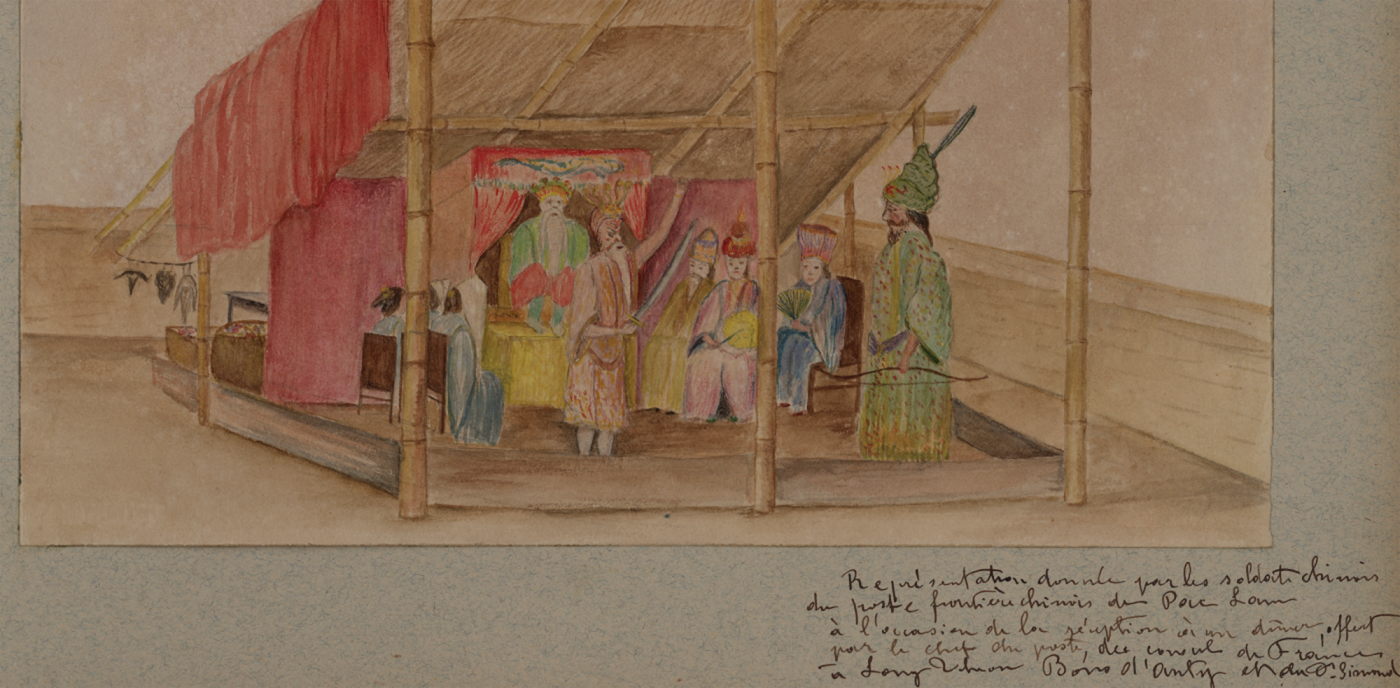 Représentation donnée par les soldats chinois
du poste frontière chinois de Pac Lam
à l'occasion de la réception à un dîner, offert
par le chef du poste, du consul de France
à Long Tcheou Bons d'Anty et du Dr Simond